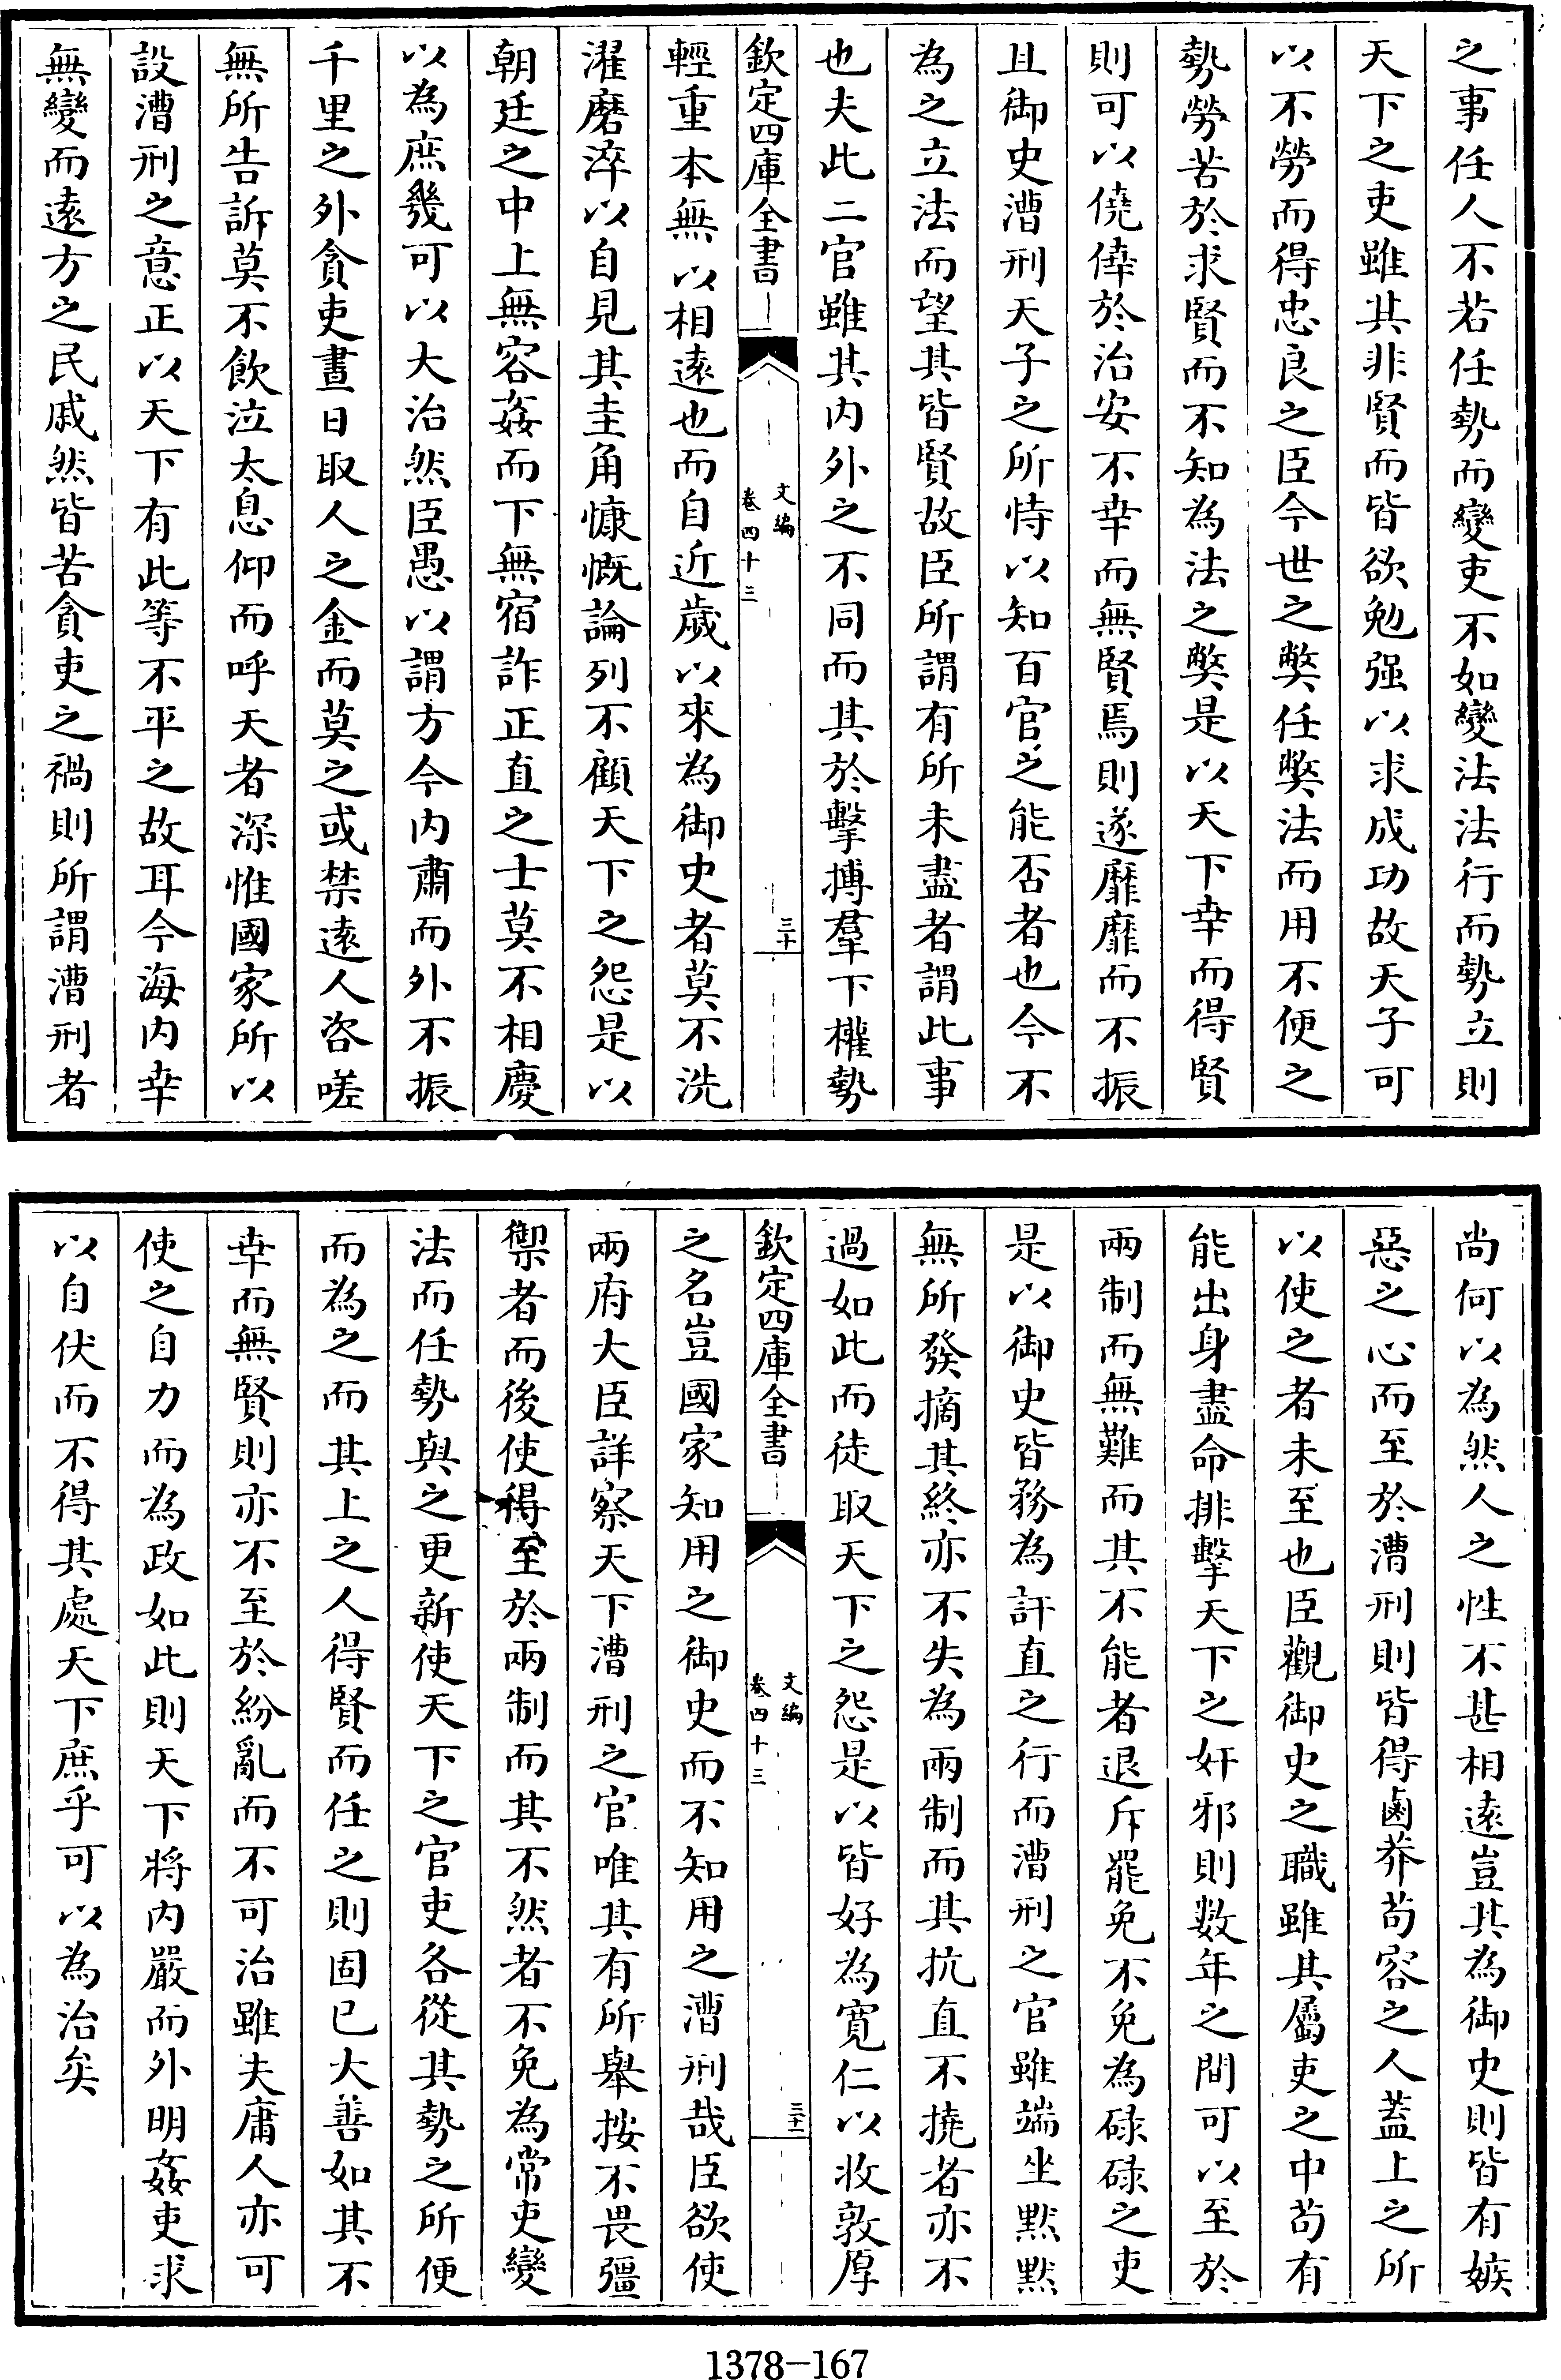 之事任人不若任勢而變吏不如變法法行而勢立則
天下之吏雖其非賢而皆欲勉强以求成功故天子可
以不勞而得忠良之臣今世之弊任弊法而用不便之
勢勞苦於求賢而不知為法之弊是以天下幸而得賢
則可以僥倖於治安不幸而無賢焉則遂靡靡而不振
且御史漕刑天子之所恃以知百官之能否者也今不
為之立法而望其皆賢故臣所謂有所未盡者謂此事
也夫此二官雖其内外之不同而其於擊搏羣下權勢
欽定四庫全書
文編
卷四十三
三十
輕重本無以相遠也而自近歲以來為御史者莫不洗
濯磨淬以自見其圭角慷慨論列不顧天下之怨是以
朝廷之中上無容姦而下無宿詐正直之士莫不相慶
以為庶幾可以大治然臣愚以謂方今内肅而外不振
千里之外貪吏晝日取人之金而莫之或禁遠人咨嗟
無所告訴莫不飲泣太息仰而呼天者深惟國家所以
設漕刑之意正以天下有此等不平之故耳今海内幸
無變而遠方之民戚然皆苦貪吏之禍則所謂漕刑者
尚何以為然人之性不甚相遠豈其為御史則皆有嫉
惡之心而至於漕刑則皆得鹵莽苟容之人蓋上之所
以使之者未至也臣觀御史之職雖其屬吏之中苟有
能出身盡命排擊天下之奸邪則数年之間可以至於
兩制而無難而其不能者退斥罷免不免為碌碌之吏
是以御史皆務為訐直之行而漕刑之官雖端坐默默
無所發摘其終亦不失為兩制而其抗直不撓者亦不
過如此而徒取天下之怨是以皆好為寛仁以收敦厚
欽定四庫全書
文編
卷四十三
三十一
之名豈國家知用之御史而不知用之漕刑哉臣欲使
兩府大臣詳察天下漕刑之官唯其有所舉按不畏彊
禦者而後使得至於兩制而其不然者不免為常吏變
法而任勢與之更新使天下之官吏各從其勢之所便
而為之而其上之人得賢而任之則固已大善如其不
幸而無賢則亦不至於紛亂而不可治雖夫庸人亦可
使之自力而為政如此則天下將内嚴而外明姦吏求
以自伏而不得其處天下庶乎可以為治矣
1378-167